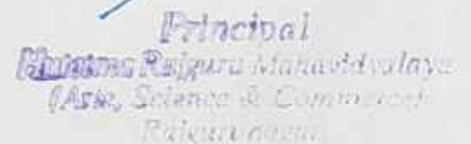 Principal
Hutatma Rajguru Mahavidyalaya
(Arts, Science & Commerce)
Rajgurunagar.